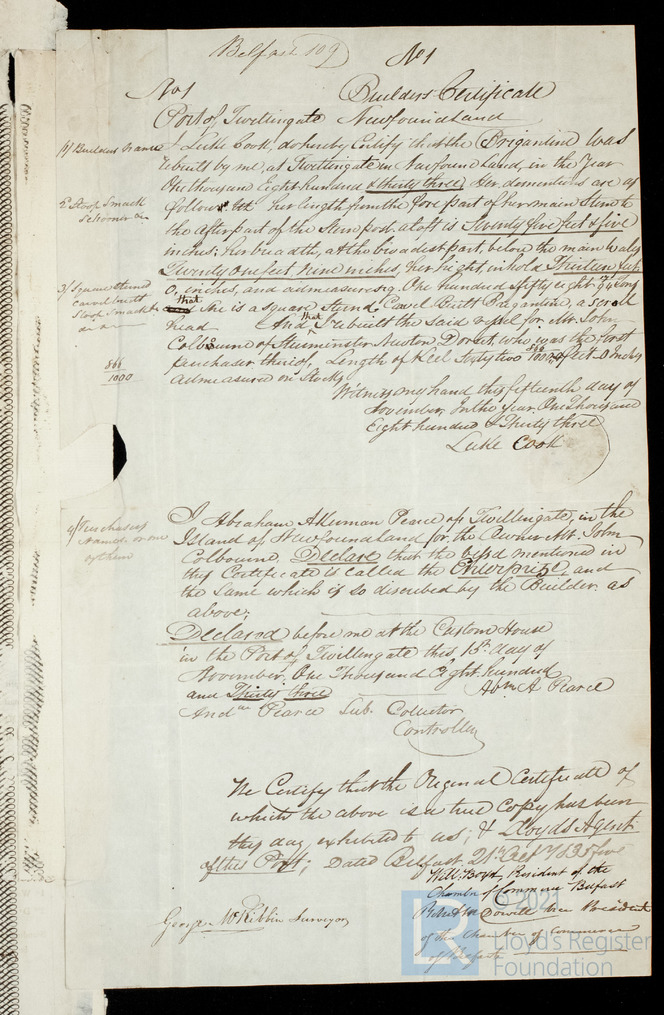 Belfast 109 No 1
No 1 Builders Certificate
Port of Twillingate Newfoundland
1/ Builders Name
I Luke Cook, do hereby Certify that the Brigantine was
rebuilt by me, at Twillingate in Newfoundland, in the Year
One thousand Eight hundred & thirty three, Her dementions are as
2 Sloop Smack
Schooner or
follows her length from the fore part of her main Stem to
the after part of the Stern post aloft is Seventy five feet & five
inches; her breadth, at the broadest part, below the main wales
Twenty one feet Nine inches, her hight in hold Thirteen feet
3/ Square Sterned
carvel built
Sloop Smack &c
or a
0, inches, and admeasures One hundred fifty eight tons
that She is a square Sternd, Carvel Built Bragantine, a scroll
head And that I rebuilt the said vessel for Mr. John
Colbourne of Sturminster Newton, Dorset, who was the first
866
1000
purchaser thereof, Length of Keel Sixty two feet 0 inches
admeasured on Stocks.
Witness my hand this fifteenth day of
November. In the Year One Thousand
Eight hundred & Thirty three
Luke Cook
4/ Purchasers
name or one
of them
I Abraham Akerman Pearce of Twillingate, in the
Island of Newfoundland for the Owner Mr. John
Colbourne, Declare that the vessel mentioned in
this Certificate is called the Enterprize, and
the same which is so discribed by the Builder. as
above;
Declared before me at the Custom House
in the Port of Twillingate this 15th day of
November, One Thousand Eight hundred
and Thirty three Abm A Pearce
And Pearce Sub. Collector
Controller
We Certify that the Original Certificate of
which the above is a true Copy has been
this day exhibited to us; & Lloyds Agent
of this Port; Dated Belfast 21st Oct 1835 five
Will: Boyd, President of the
Chamber of Commerce Belfast
George McKibbin Surveyor
Vice President
of the Chamber of Commerce
of Belfast
© 2021
LR
Lloyd's Register
Foundation